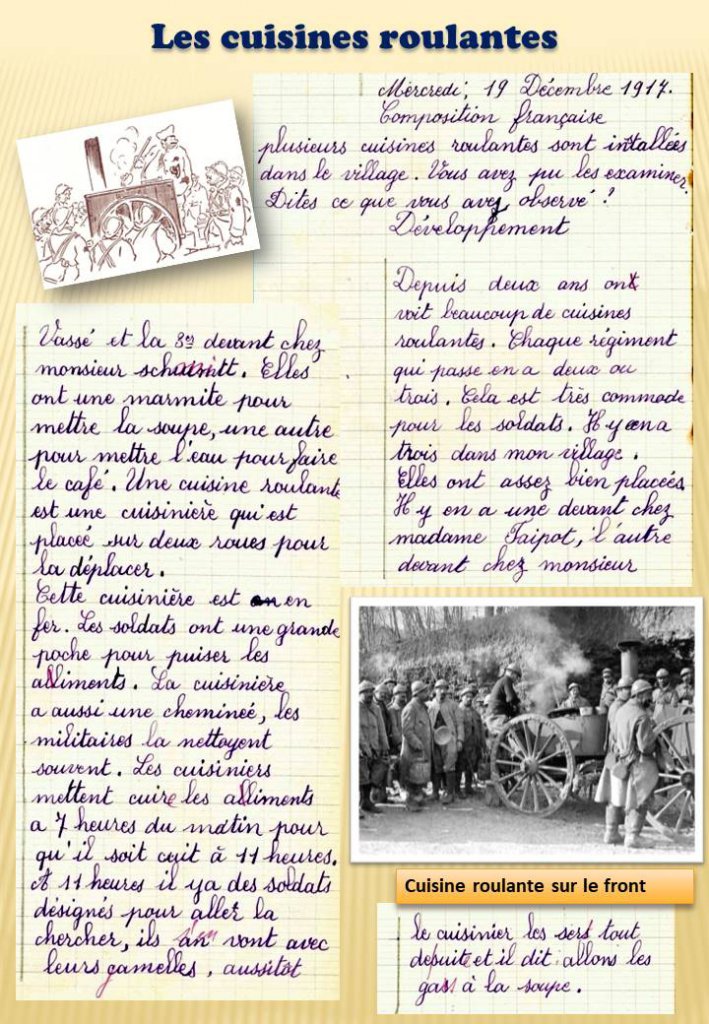 Les cuisines roulantes
Mercredi, 19 Décembre 1917.
Composition française
plusieurs cuisines roulantes sont intallées
dans le village. Vous avez pu les examiner.
Dites ce que vous avez observé ?
Développement
Depuis deux ans ont
voit beaucoup de cuisines
roulantes. Chaque régiment
qui passe en a deux ou
trois. Cela est très commode
pour les soldats. Il y en a
trois dans mon village.
Elles ont assez bien placées.
Il y en a une devant chez
madame Taipot, l'autre
devant chez monsieur
Vassé et la 3es devant chez
monsieur schmitt. Elles
ont une marmite pour
mettre la soupe, une autre
pour mettre l'eau pour faire
le café. Une cuisine roulante
est une cuisinière qui est
placeé sur deux roues pour
la déplacer.
Cette cuisinière est en
fer. Les soldats ont une grande
poche pour puiser les
alliments. La cuisiniere
a aussi une chemineé, les
militaires la nettoyent
souvent. Les cuisiniers
mettent cuire les alliments
a 7 heures du matin pour
qu'il soit cuit à 11 heures.
A 11 heures il ya des soldats
désignés pour aller la
chercher, ils vont avec
leurs gamelles, aussitôt
Cuisine roulante sur le front
le cuisinier les sers tout
depuite et il dit allons les
gass à la soupe.